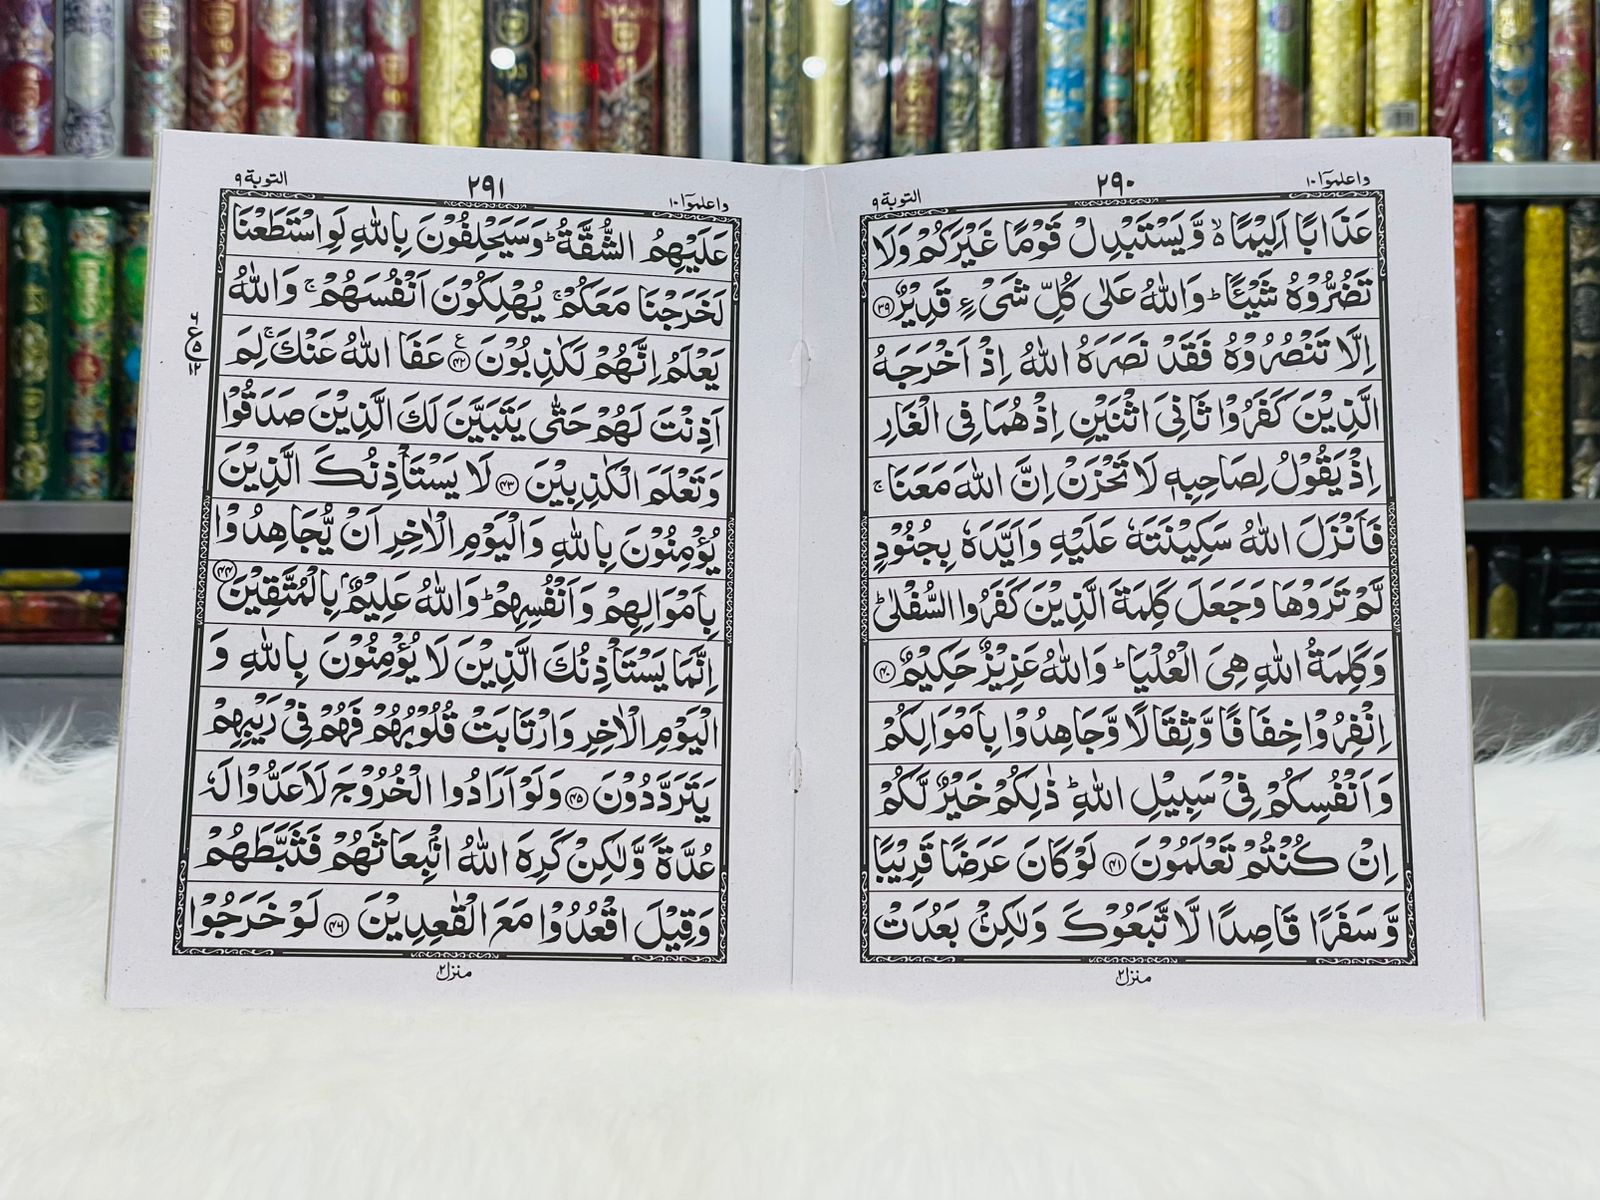 واعلموٓا ١٠
٢٩٠
التوبة ٩
عَذَابًا اَلِيْمًا ۙ وَّيَسْتَبْدِلْ قَوْمًا غَيْرَكُمْ وَلَا
تَضُرُّوْهُ شَيْـًٔا ؕ وَاللّٰهُ عَلٰى كُلِّ شَىْءٍ قَدِيْرٌ ﴿۳۹﴾
اِلَّا تَنْصُرُوْهُ فَقَدْ نَصَرَهُ اللّٰهُ اِذْ اَخْرَجَهُ
الَّذِيْنَ كَفَرُوْا ثَانِىَ اثْنَيْنِ اِذْ هُمَا فِى الْغَارِ
اِذْ يَقُوْلُ لِصَاحِبِهٖ لَا تَحْزَنْ اِنَّ اللّٰهَ مَعَنَا ۚ
فَاَنْزَلَ اللّٰهُ سَكِيْنَتَهٗ عَلَيْهِ وَاَيَّدَهٗ بِجُنُوْدٍ
لَّمْ تَرَوْهَا وَجَعَلَ كَلِمَةَ الَّذِيْنَ كَفَرُوا السُّفْلٰى ؕ
وَكَلِمَةُ اللّٰهِ هِىَ الْعُلْيَا ؕ وَاللّٰهُ عَزِيْزٌ حَكِيْمٌ ﴿۴۰﴾
اِنْفِرُوْا خِفَافًا وَّثِقَالًا وَّجَاهِدُوْا بِاَمْوَالِكُمْ
وَاَنْفُسِكُمْ فِىْ سَبِيْلِ اللّٰهِ ؕ ذٰلِكُمْ خَيْرٌ لَّكُمْ
اِنْ كُنْتُمْ تَعْلَمُوْنَ ﴿۴۱﴾ لَوْ كَانَ عَرَضًا قَرِيْبًا
وَّسَفَرًا قَاصِدًا لَّا تَّبَعُوْكَ وَلٰكِنْۢ بَعُدَتْ
منزل ٢
واعلموٓا ١٠
٢٩١
التوبة ٩
عَلَيْهِمُ الشُّقَّةُ ؕ وَسَيَحْلِفُوْنَ بِاللّٰهِ لَوِ اسْتَطَعْنَا
لَخَرَجْنَا مَعَكُمْ ۚ يُهْلِكُوْنَ اَنْفُسَهُمْ ۚ وَاللّٰهُ
يَعْلَمُ اِنَّهُمْ لَكٰذِبُوْنَ ﴿۴۲﴾ ع عَفَا اللّٰهُ عَنْكَ ۚ لِمَ
اَذِنْتَ لَهُمْ حَتّٰى يَتَبَيَّنَ لَكَ الَّذِيْنَ صَدَقُوْا
وَتَعْلَمَ الْكٰذِبِيْنَ ﴿۴۳﴾ لَا يَسْتَاْذِنُكَ الَّذِيْنَ
يُؤْمِنُوْنَ بِاللّٰهِ وَالْيَوْمِ الْاٰخِرِ اَنْ يُّجَاهِدُوْا
بِاَمْوَالِهِمْ وَاَنْفُسِهِمْ ؕ وَاللّٰهُ عَلِيْمٌۢ بِالْمُتَّقِيْنَ ﴿۴۴﴾
اِنَّمَا يَسْتَاْذِنُكَ الَّذِيْنَ لَا يُؤْمِنُوْنَ بِاللّٰهِ وَ
الْيَوْمِ الْاٰخِرِ وَارْتَابَتْ قُلُوْبُهُمْ فَهُمْ فِىْ رَيْبِهِمْ
يَتَرَدَّدُوْنَ ﴿۴۵﴾ وَلَوْ اَرَادُوا الْخُرُوْجَ لَاَعَدُّوْا لَهٗ
عُدَّةً وَّلٰكِنْ كَرِهَ اللّٰهُ انْۢبِعَاثَهُمْ فَثَبَّطَهُمْ
وَقِيْلَ اقْعُدُوْا مَعَ الْقٰعِدِيْنَ ﴿۴۶﴾ لَوْ خَرَجُوْا
منزل ٢